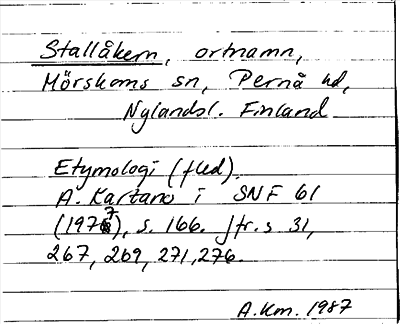 Stallåkern, ortnamn,
Mörskoms sn, Pernå hd,
Nylandsl. Finland
Etymologi (fled).
A. Kartano i SNF 61
(1977), s. 166. Jfr. s 31,
267, 269, 271, 276.
A.Km. 1987